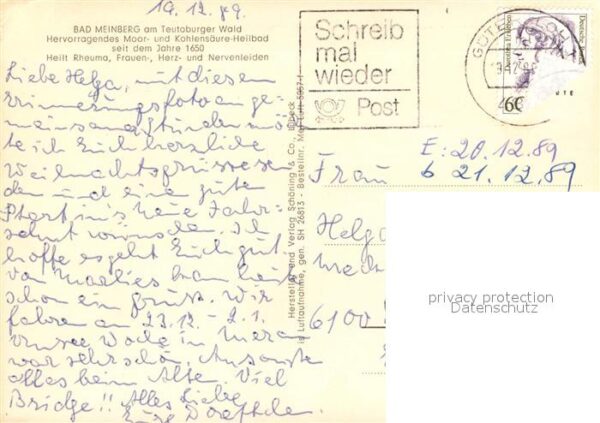 19.12.89.
BAD MEINBERG am Teutoburger Wald
Hervorragendes Moor- und Kohlensäure-Heilbad
seit dem Jahre 1650
Heilt Rheuma, Frauen-, Herz- und Nervenleiden
Liebe Helga, mit diesem
Erinnerungsfoto an ge-
meinsame Stunden möch
te ich Euch herzliche
Weihnachtsgrüsse sen
den und eine gute
Start ins neue Jahr-
zehnt wünschen. Ich
hoffe es geht Euch gut,
von Marlies kam heute
schon ein Gruss. Wir
fahren am 23.12 - 2.1.
unsere Woche in Meran
war sehr schön. Ansonsten
alles beim Alten. Viel
Bridge!! Alles Liebe
Eure
Hersteller und Verlag Schöning & Co., Lübeck
Luftaufnahme, gen. SH 26813 - Bestellnr.
Schreib
mal
wieder
Post
Deutsche Bundespost
60
E: 20.12.89
b 21.12.89
Frau
Helga
6100
privacy protection
Datenschutz